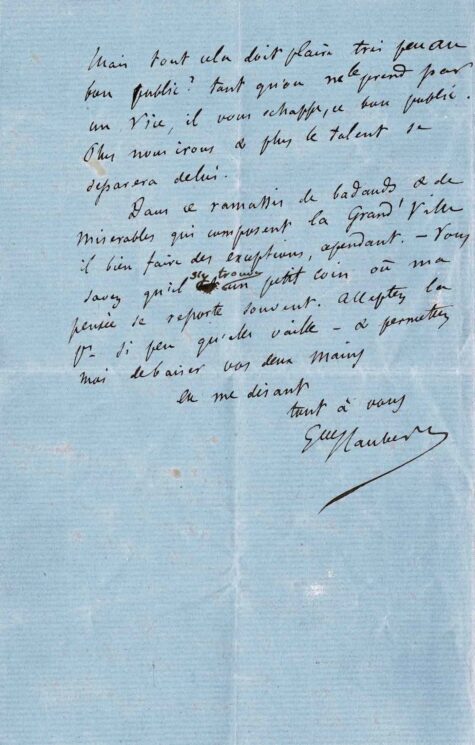 Mais tout cela doit plaire très peu au
bon public? tant qu'on ne le prend par
un Vice, il vous échappe, ce bon public.
Plus nous irons & plus le talent se
separera de lui.
Dans ce ramassis de badauds & de
miserables qui composent la Grand' Ville
il bien faire des exceptions, cependant. – Vous
savez qu'il s'y trouve un petit coin où ma
pensée se reporte souvent. Acceptez la
pr si peu qu'elle vaille – & permettez
moi de baiser vos deux mains
en me disant
tout à vous
Gve Flaubert